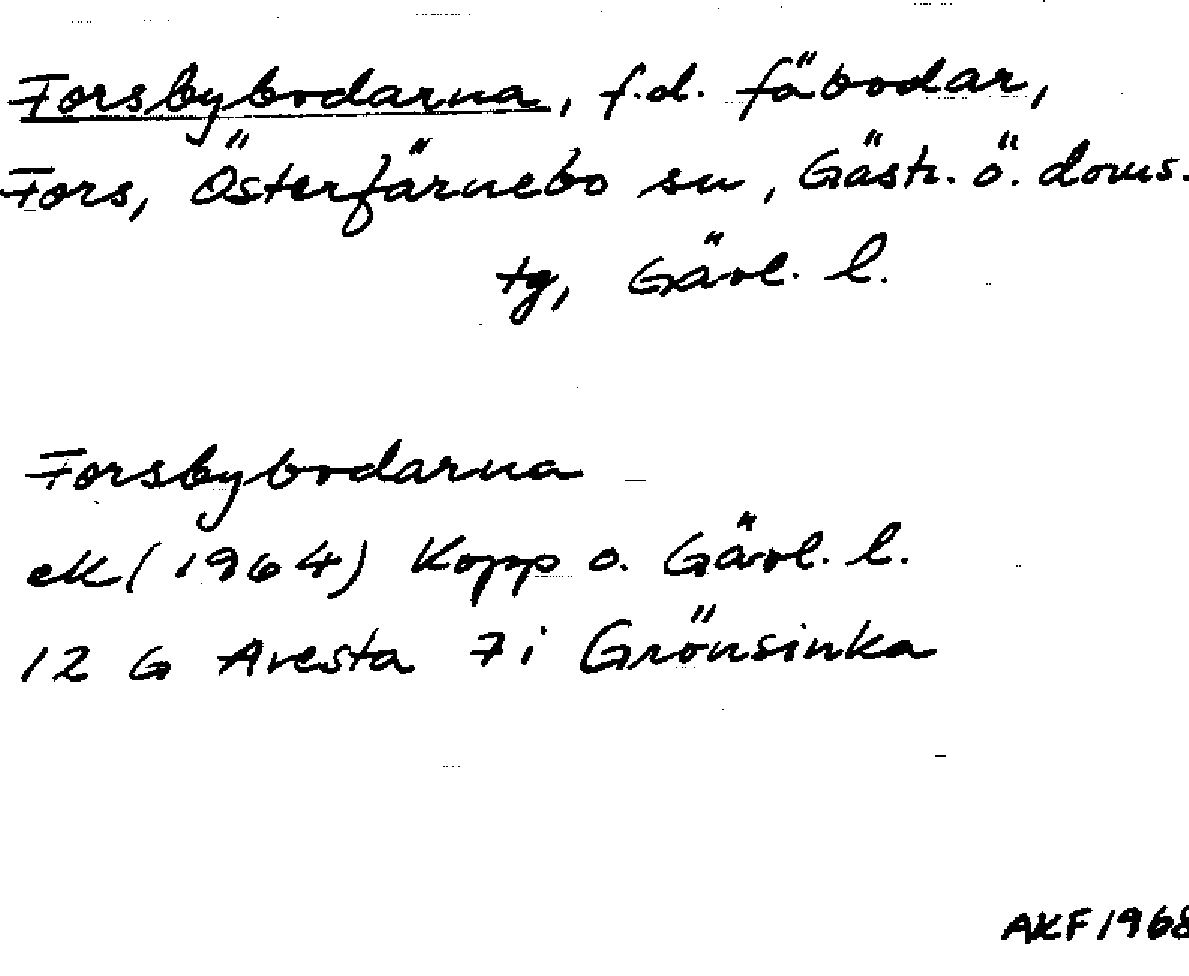 Forsbybodarna, f.d. fäbodar,
Fors, Österfärnebo sn, Gästr. ö. doms.
tg, Gävl. l.
Forsbybodarna
ek (1964) Kopp o. Gävl. l.
12 G Avesta 7 i Grönsinka
AKF 1968